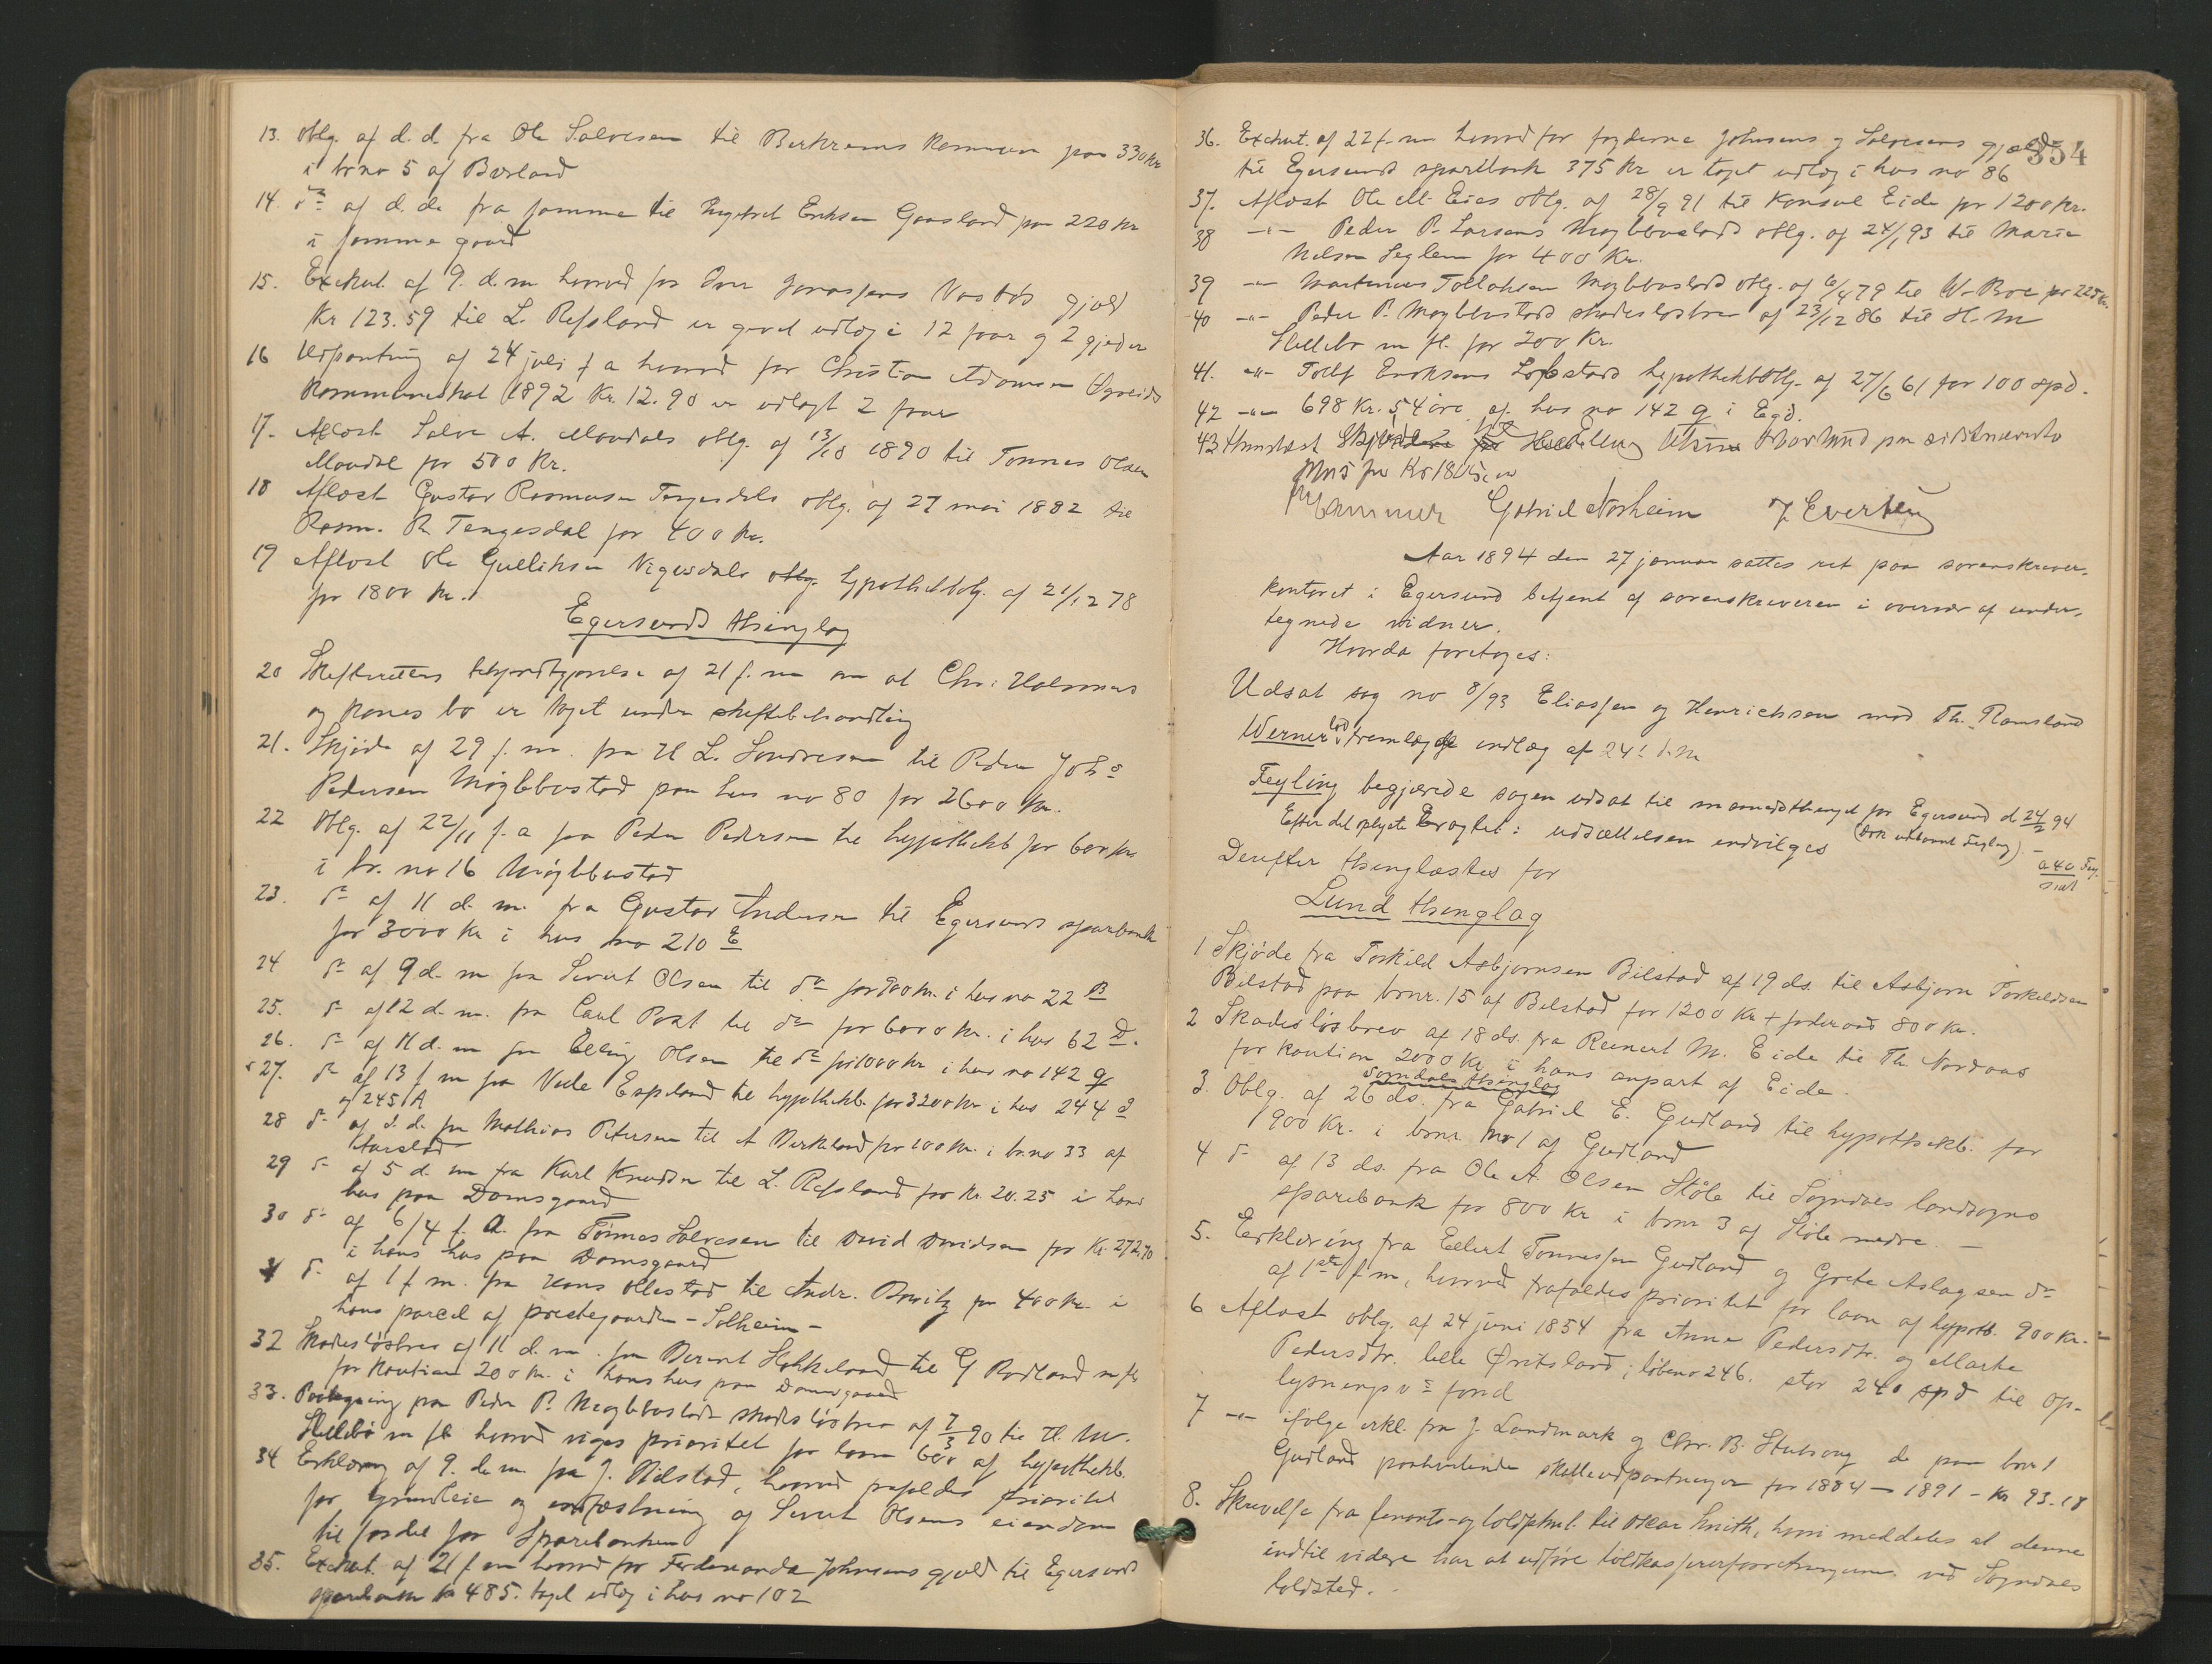 13. Oblg. af d. d. fra Ole Salvesen til Birkrems kommune paa 330 kr
i br no 5 af Birkland
14. do af d. d. fra samme til Ingebret Eriksen Gaasland paa 220 kr
i samme gaard
15. Exekut. af 9. d. m. hvorved for Jonassens gjæld
Kr 123.59 til L. Refsland er gjort udlæg i 12 faar og 2 gjeder
16 Udpantning af 24 juli f a hvorved for Christian Adamsen Øgreids
kommuneskat 1892 kr. 12.90 er udlagt 2 faar
17. Aflæst Salve A. Mondals oblg. af 13/10 1890 til Tønnes Olsen
Mondal for 500 Kr.
18 Aflæst Gustav Rasmusen Tengesdals oblg. af 27 mai 1882 til
Rasm. R. Tengesdal for 400 kr.
19 Aflæst Ole Gulliksen Vigesdals hypothekoblg. af 21/12 78
for 1800 kr.
Egersunds thinglag
20 Skifterettens bekjendtgjørelse af 21 f. m. om at Chr. Halvorsens
og kones bo er taget under skiftebehandling
21. Skjøde af 29 f. m. fra H L. Sondresen til Peder Johs
Pedersen Møglebostad paa hus no 80 for 2600 kr.
22 Oblg. af 22/11 f. a fra Peder Pedersen til hypothekb for 600 kr
i br. no 16 Møglebustad
23. do af 11 d. m. fra Gustav Andersen til Egersunds sparebank
for 3000 kr i hus no 210 E
24 do af 9 d. m fra Sivert Olsen til do for 900 kr. i hus no 22 B
25. do af 12 d. m. fra Carl Post til do for 6000 kr. i hus 62 D.
26. do af 11 d. m fra Elling Olsen til do for 1000 kr i hus no 142 g
27. do af 13 f m fra Vilde Espeland til hypothekb. for 3200 kr i hus 244 d
og 245 1A
28 do af d. d. fra Mathias Petersen til A Birkeland for 100 kr. i br. no 33 af
Harstad
29 do af 5 d. m fra Karl Knudsen til L. Refsland for kr. 20.25 i hans
hus paa Damsgaard
30 do af 6/4 f. a. fra Tønnes Salvesen til David Davidsen for kr. 272.70
i hans hus paa Damsgaard
31 do af 1 f m. fra Hans Ollestad til Andr. for 400 kr. i
hans parcel af præstegaarden - Solheim -
32 Skadesløsbrev af 11 d. m. fra Berent Hokkeland til G Rodland m fl
for kaution 200 kr. i hans hus paa Damsgaard
33. Paategning paa Peder P. Møglebostads skadesløsbrev af 7/3 90 til H. M.
Skillebø m fl hvorved viges prioritet for laan 600 af hypothekb.
34 Erklæring af 9. d. m. fra J. Bilstad, hvorved frafaldes prioritet
for grundleie og af Sivert Olsens eiendom
til fordel for Sparebanken
35. Exekut. af 21 f m hvorved for Ferdenanda Johnsens gjæld til Egersunds
sparebank kr 485. taget udlæg i hus no 102
354
36. Exekut. af 22 f. m hvorved for fogderne Johnsens og Salvesens gjæld
til Egersunds sparebank 375 kr er taget udlæg i hus no 86
37. Aflæst Ole M. Eies oblg. af 28/9 91 til Konsul Eide for 1200 kr.
38 -"- Peder P. Larsens Møglebostads oblg. af 24/1 93 til Marie
Nilsen Seglem for 400 Kr.
39 -"- Martinius Tollaksen Møglebostads oblg. af 6/4 79 til W. Boe for 225 kr.
40 -"- Peder P. Møglebustads skadesløsbrev af 23/12 86 til H. M
Skillebø m fl. for 200 Kr.
41. -"- Tolf Eriksens hypothekoblg. af 27/6 61 for 100 spd.
42 -"- 698 Kr. 54 øre af hus no 142 g i Egd.
43 Thinglæst Skjøde fra Elling
for Kr 1805,00
Gabriel Norheim J. Evertsen
Aar 1894 den 27 januar sattes ret paa sorenskriver-
kontoret i Egersund betjent af sorenskriveren i overvær af under-
tegnede vidner.
Hvorda foretoges:
Udsat sag no 8/93 Eliassen og Henrichsen mod Th. Ramsland
Werner lod fremlægge indlæg af 24' d. m
Feyling begjærede sagen udsat til maanedsthinget for Egersund d 24/2 94
Efter det oplyste Eragtet: udsættelsen indvilges (Dok udlaant Feyling). -
a 40 Fey.
Derefter thinglæstes for
Lund thinglag
1 Skjøde fra Torkild Asbjørnsen Bilstad af 19 ds. til Asbjørn Torkildsen
Bilstad paa brnr. 15 af Bilstad for 1200 Kr + foderaad 800 Kr.
2 Skadesløsbrev af 18 ds. fra Reinert M. Eide til Th. Nordaas
for kaution 2000 Kr i hans anpart af Eide.
Sogndals thinglag
3. Oblg. af 26 ds. fra Gabriel E. Gudland til hypothekb. for
900 Kr. i brnr. no 1 af Gudland
4 do af 13 ds. fra Ole A. Olsen Støle til Sogndals landsogns
sparebank for 800 Kr i brnr 3 af Støle nedre. -
5. Erklæring fra Ellert Tønnessen Gudland og Grete Aslagsen do
af 1ste f m, hvorved frafaldes prioritet for laan af hypoth. 900 kr.
6 Aflæst oblg. af 24 juni 1854 fra Anne Pedersdtr. og Marte
Pedersdtr. lille Øvitsland, løbeno 246. stor 240 spd til Op-
lysningsvs fond
7 -"- ifølge erkl. fra J. Landmark og Chr. B. Stubsong de paa brnr 1
Gudland paahvilende skatteudpantninger for 1884 - 1891 - kr 93.18
8. Skrivelse fra finants- og tolddepart. til Oscar Smith, hvori meddeles at denne
indtil videre har at udføre toldkassererforretningerne ved Sogndals
toldsted.